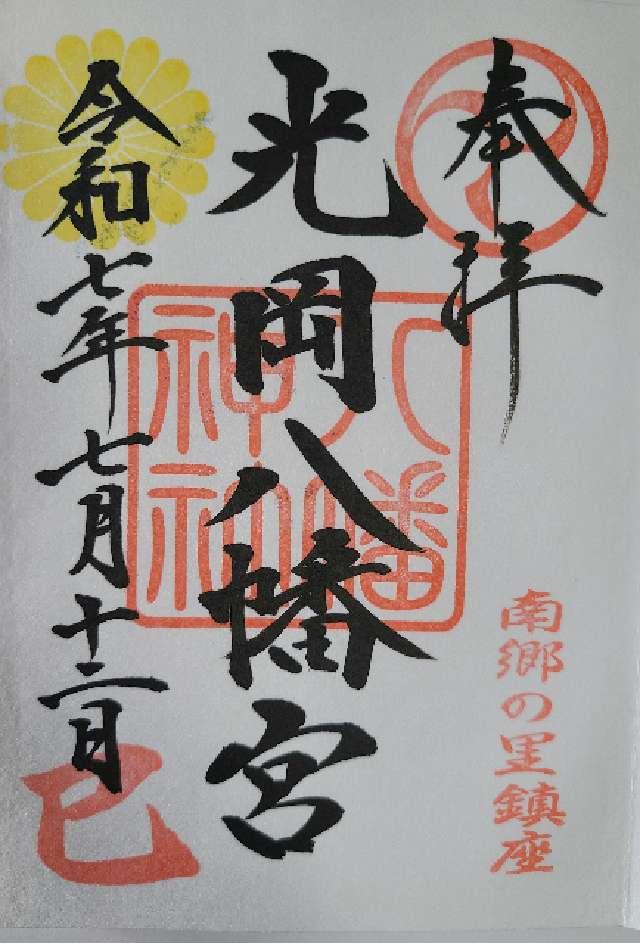 奉拝
南郷の里鎮座
光岡八幡宮
八幡
神社
令和七年七月十二日
巳